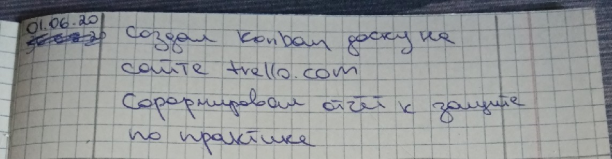 01.06.20 создал конбан доску на
сайте trello.com
Сформировал отчёт к защите
по практике